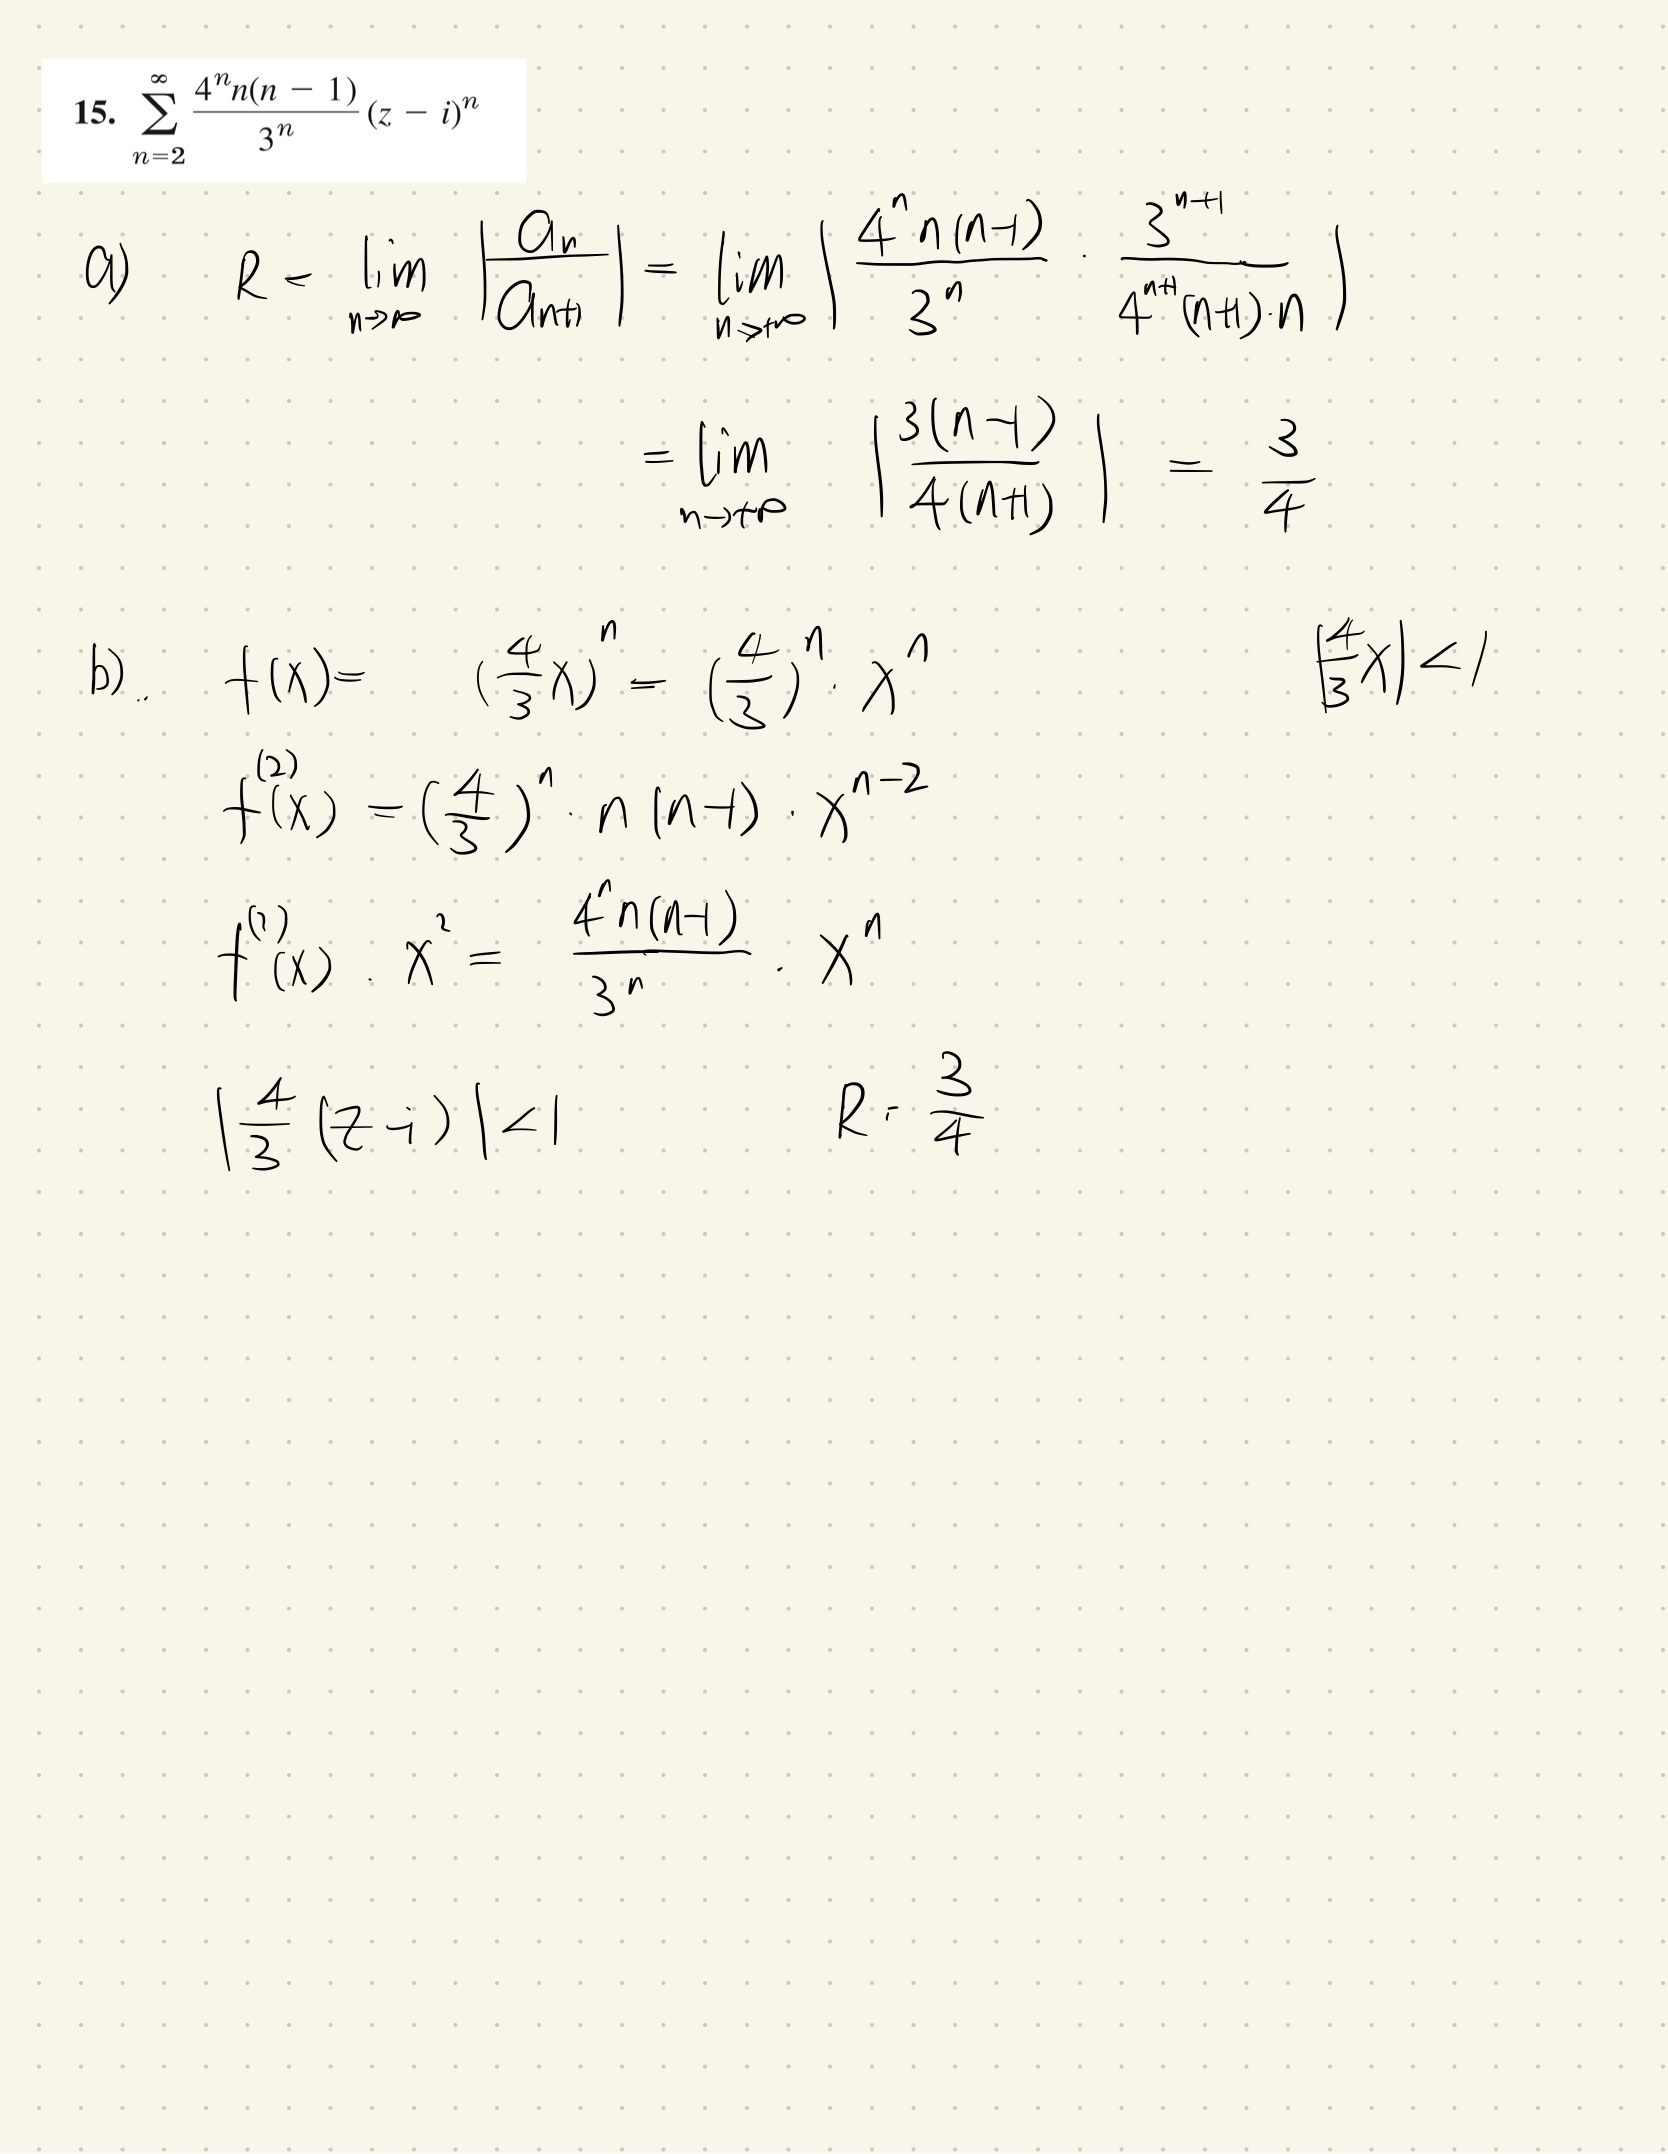 15. \sum_{n=2}^{\infty} \frac{4^n n(n - 1)}{3^n} (z - i)^n
a) R = \lim_{n→∞} |\frac{a_n}{a_{n+1}}| = \lim_{n→+∞} |\frac{4^n n(n-1)}{3^n} · \frac{3^{n+1}}{4^{n+1}(n+1)·n}|
= \lim_{n→+∞} |\frac{3(n-1)}{4(n+1)}| = \frac{3}{4}
b). f(x) = (\frac{4}{3}x)^n = (\frac{4}{3})^n · x^n |\frac{4}{3}x| < 1
f^{(2)}(x) = (\frac{4}{3})^n · n(n-1) · x^{n-2}
f^{(2)}(x) · x^2 = \frac{4^n n(n-1)}{3^n} · x^n
|\frac{4}{3}(z-i)| < 1 R = \frac{3}{4}